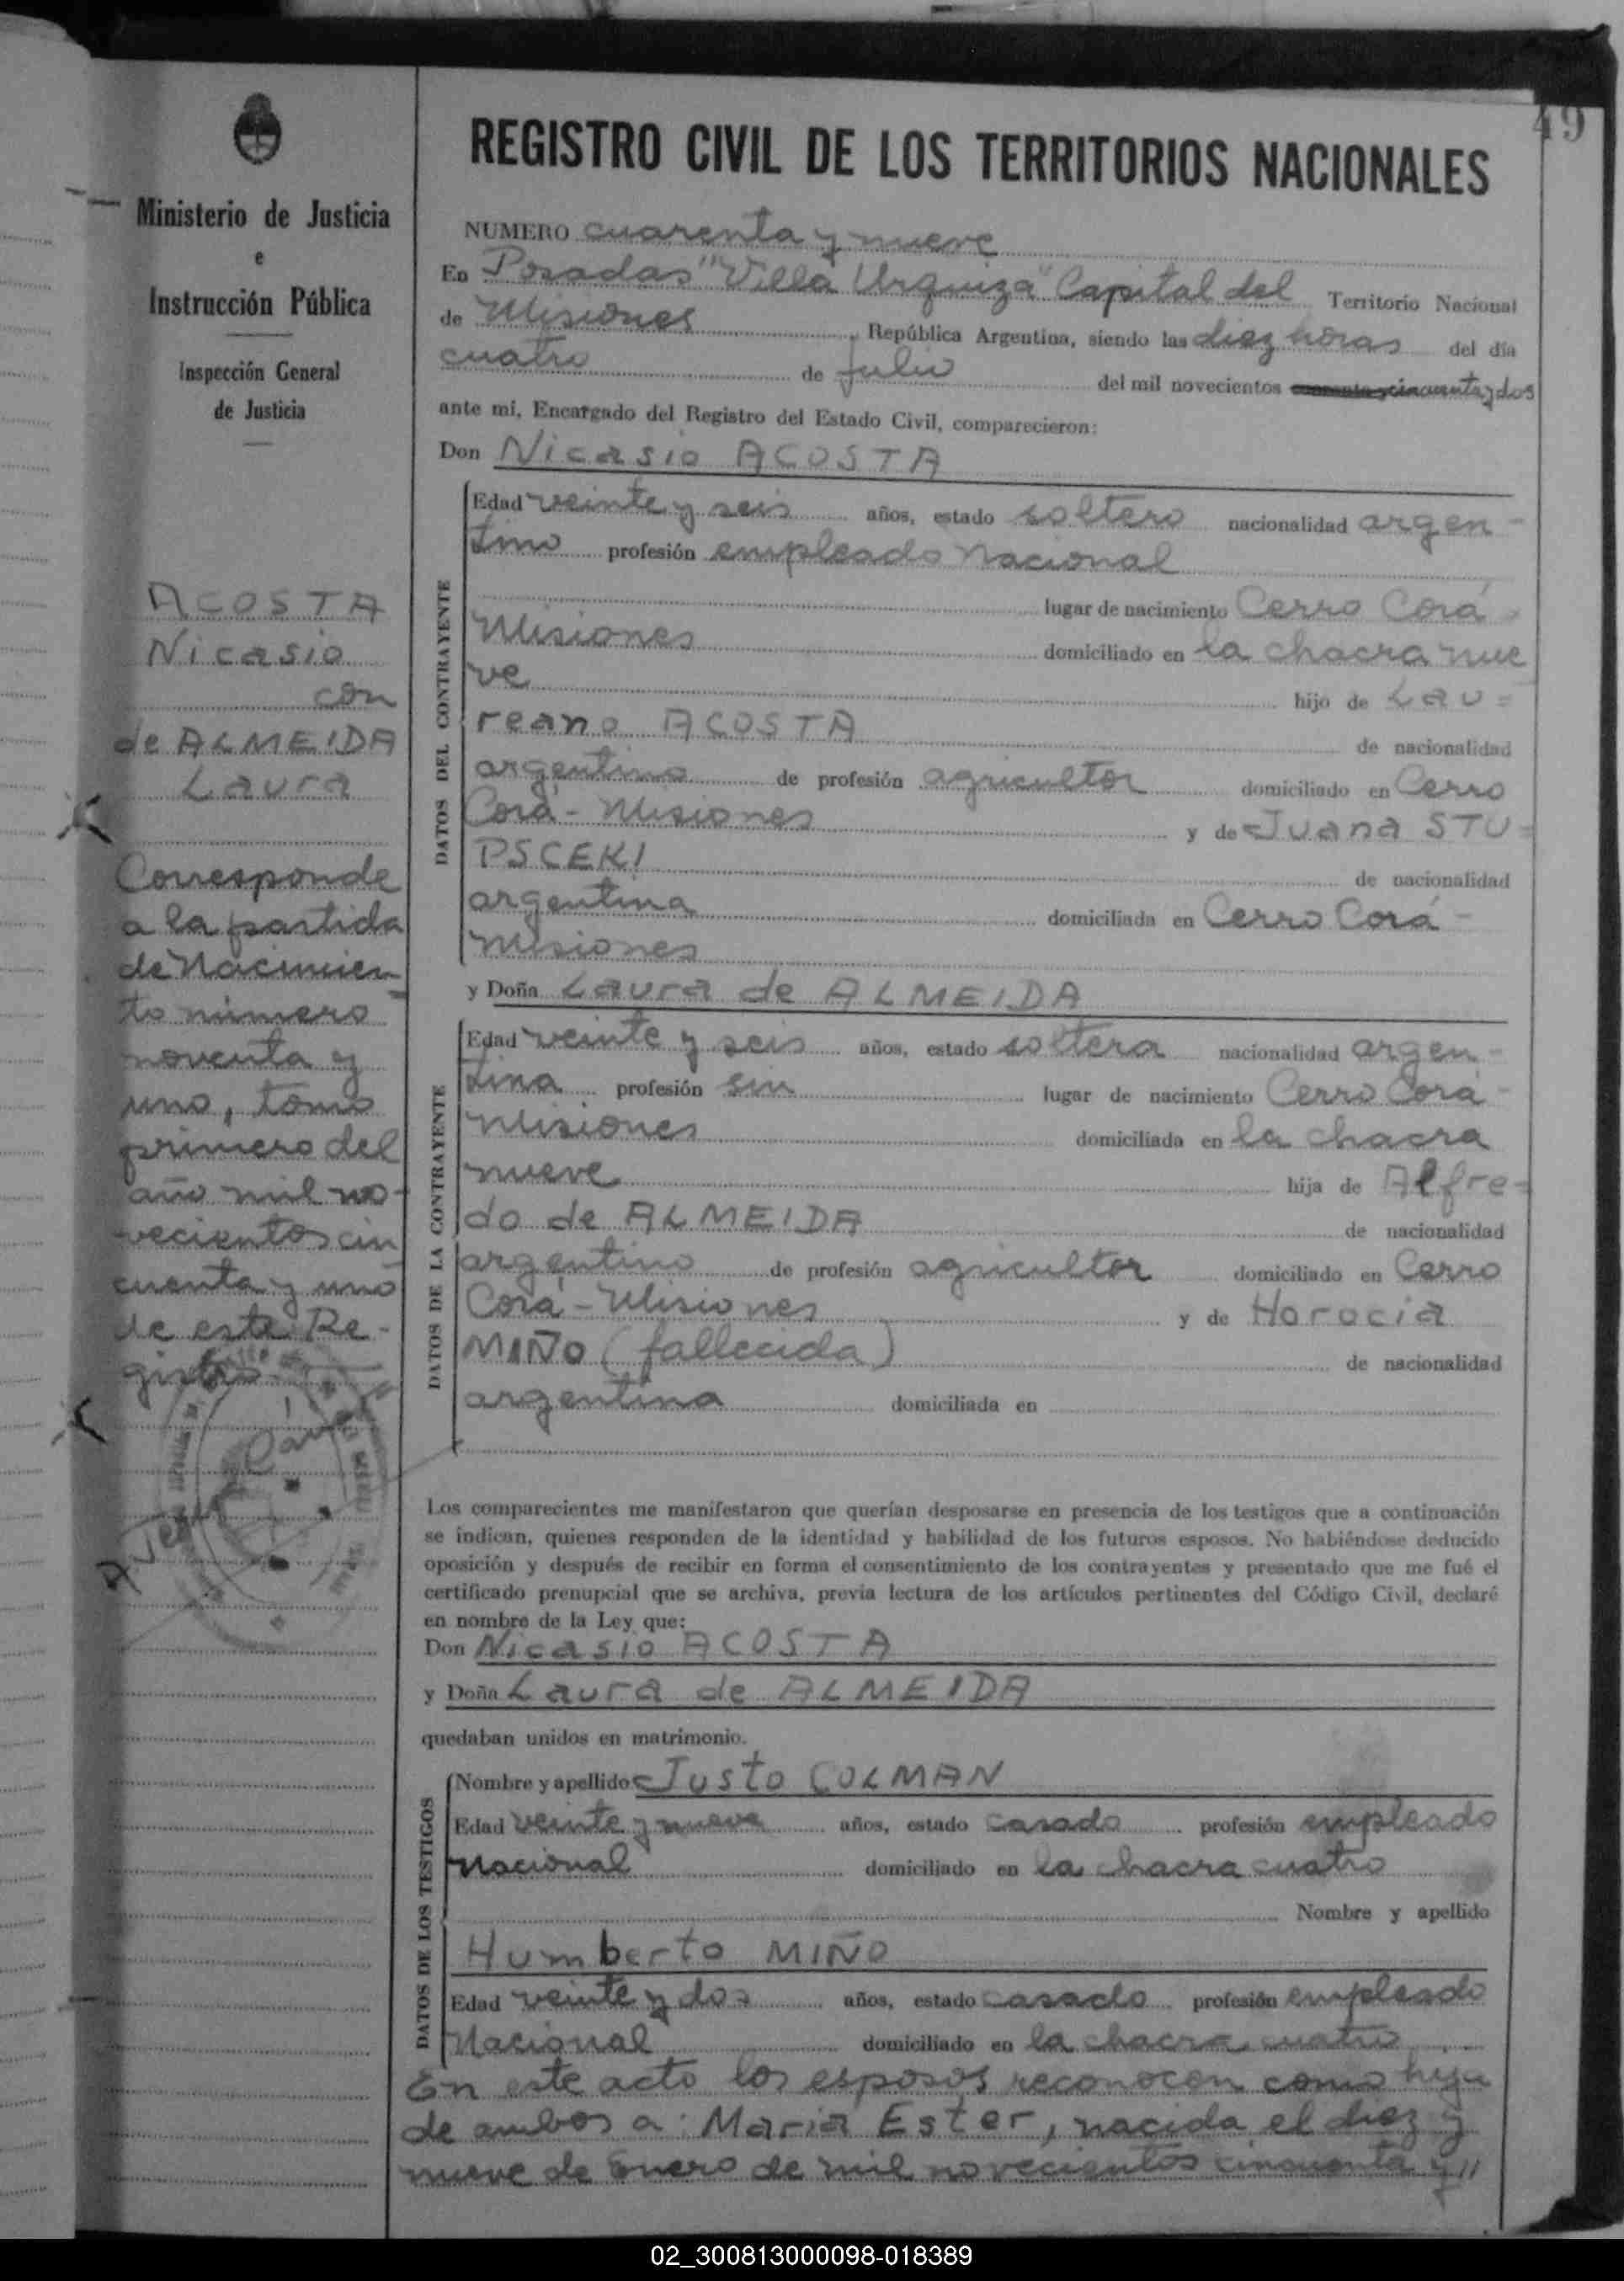 49
Ministerio de Justicia
e
Instrucción Pública
Inspección General
de Justicia
ACOSTA
Nicasio
con
de ALMEIDA
Laura
Corresponde
a la partida
de Nacimien-
to número
noventa y
uno, tomo
primero del
año mil no-
vecientos cin
cuenta y uno
de este Re-
gistro
REGISTRO CIVIL DE LOS TERRITORIOS NACIONALES
NUMERO cuarenta y nueve
En Posadas "Villa Urquiza" Capital del Territorio Nacional
de Misiones, República Argentina, siendo las diez horas del día
cuatro de julio del mil novecientos cincuenta y dos
ante mí, Encargado del Registro del Estado Civil, comparecieron:
Don Nicasio ACOSTA
DATOS DEL CONTRAYENTE
Edad veinte y seis años, estado soltero nacionalidad argen-
tino profesión empleado Nacional
lugar de nacimiento Cerro Corá-
Misiones domiciliado en la chacra nue
ve hijo de Lau=
reano ACOSTA de nacionalidad
argentino de profesión agricultor domiciliado en Cerro
Corá - Misiones y de Juana STU=
PSCEKI de nacionalidad
argentina domiciliada en Cerro Corá -
Misiones
y Doña Laura de ALMEIDA
DATOS DE LA CONTRAYENTE
Edad veinte y seis años, estado soltera nacionalidad argen-
tina profesión sin lugar de nacimiento Cerro Corá-
Misiones domiciliada en la chacra
nueve hija de Alfre=
do de ALMEIDA de nacionalidad
argentino de profesión agricultor domiciliado en Cerro
Corá - Misiones y de Horocia
MIÑO (fallecida) de nacionalidad
argentina domiciliada en
Los comparecientes me manifestaron que querían desposarse en presencia de los testigos que a continuación
se indican, quienes responden de la identidad y habilidad de los futuros esposos. No habiéndose deducido
oposición y después de recibir en forma el consentimiento de los contrayentes y presentado que me fué el
certificado prenupcial que se archiva, previa lectura de los artículos pertinentes del Código Civil, declaré
en nombre de la Ley que:
Don Nicasio ACOSTA
y Doña Laura de ALMEIDA
quedaban unidos en matrimonio.
DATOS DE LOS TESTIGOS
Nombre y apellido Justo COLMAN
Edad veinte y nueve años, estado casado profesión empleado
Nacional domiciliado en la chacra cuatro
Nombre y apellido
Humberto MIÑO
Edad veinte y dos años, estado casado profesión empleado
Nacional domiciliado en la chacra cuatro
En este acto los esposos reconocen como hija
de ambos a: Maria Ester, nacida el diez y
nueve de Enero de mil novecientos cincuenta y //
02_300813000098-018389